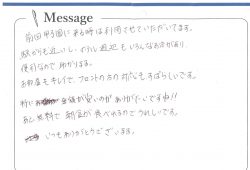 Message
前回甲子園に来る時は利用させていただいてます。
駅からも近いし、ホテル周辺もいろんなお店があり、
便利なので助かります。
お部屋もキレイで、フロントの方の対応もすばらしいです。
特に 金額が安いのがありがたいですね!!
あと無料で朝食が食べれるのでうれしいです。
いつもありがとうございます。